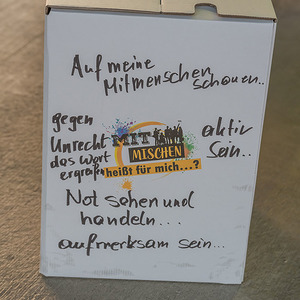 Auf meine
Mitmenschen
schauen..
gegen
Unrecht
das Wort
ergreifen
MIT
MISCHEN
heißt für mich...?
aktiv
sein..
Not sehen und
handeln...
aufmerksam sein...